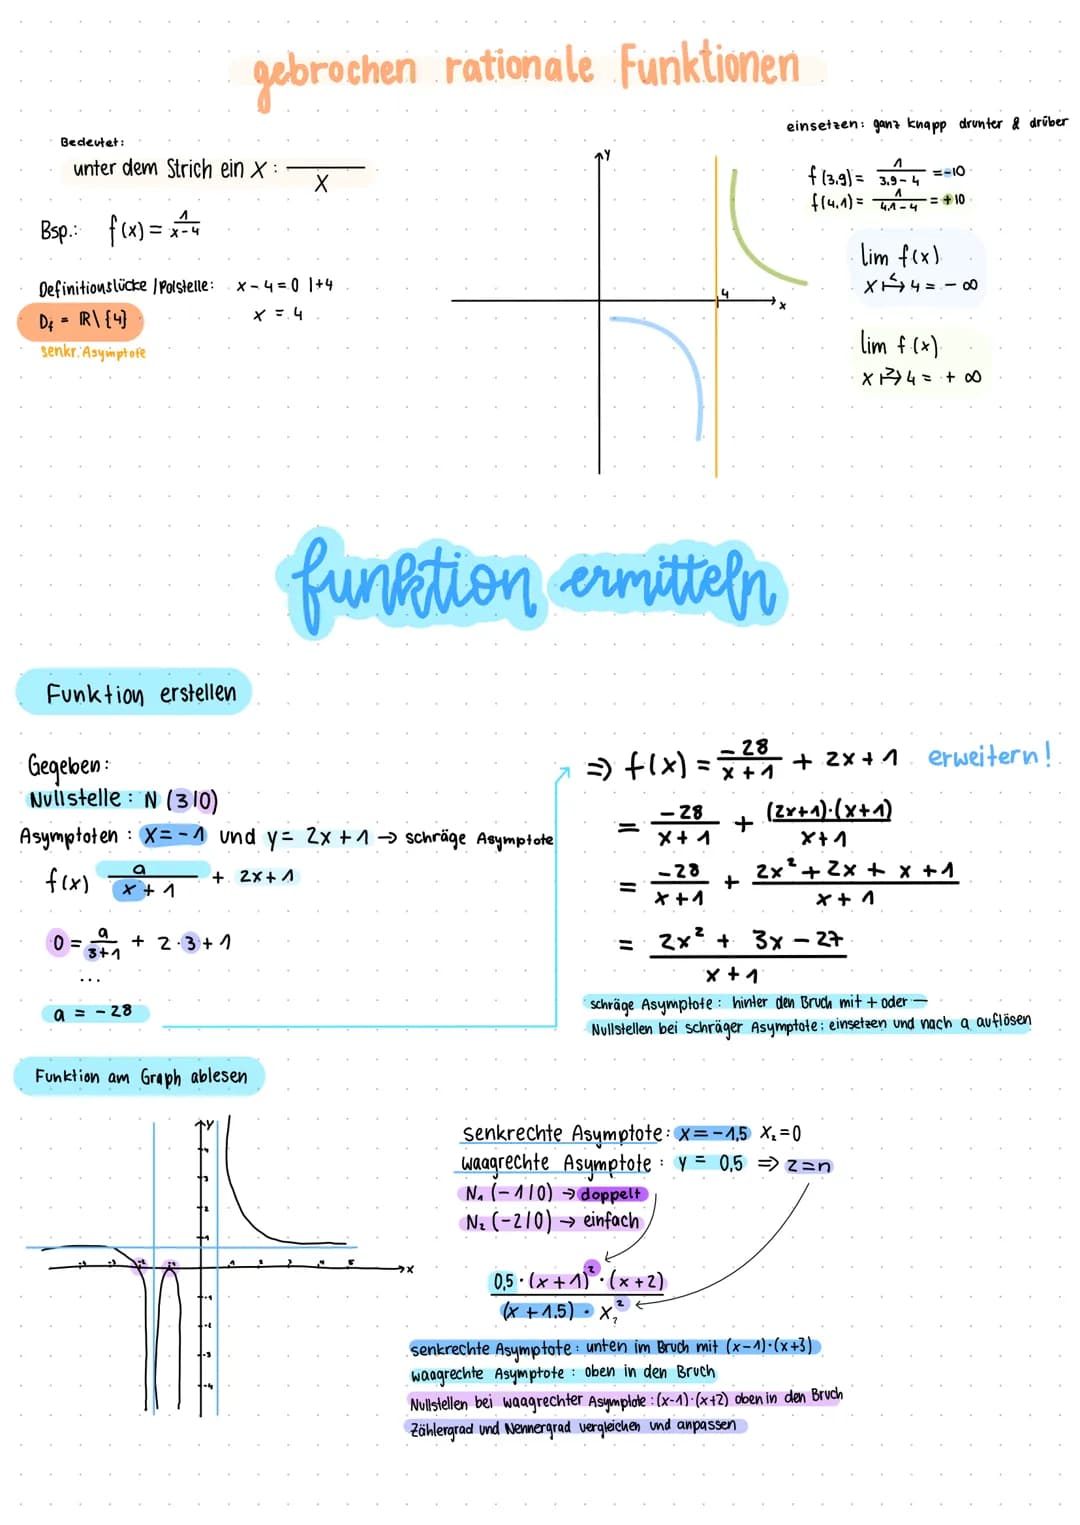 gebrochen rationale Funktionen
einsetzen: ganz knapp drunter & drüber
Bedeutet:
unter dem Strich ein X : ― / X
Bsp.: f(x) = 1/(x-4)
Definitionslücke / Polstelle: x - 4 = 0 |+4
x = 4
Df = ℝ\{4}
senkr. Asymptote
y
4
x
f(3,9) = 1/(3,9-4) = -10
f(4,1) = 1/(4,1-4) = +10
lim f(x)
x ↦< 4 = - ∞
lim f(x)
x ↦> 4 = + ∞
funktion ermitteln
Funktion erstellen
Gegeben:
Nullstelle: N (3|0)
Asymptoten : x = -1 und y = 2x + 1 → schräge Asymptote
f(x) a/(x+1) + 2x + 1
0 = a/(3+1) + 2·3 + 1
...
a = - 28
⇒ f(x) = -28/(x+1) + 2x + 1 erweitern!
= -28/(x+1) + (2x+1)·(x+1)/(x+1)
= -28/(x+1) + (2x² + 2x + x + 1)/(x+1)
= (2x² + 3x - 27)/(x+1)
schräge Asymptote: hinter den Bruch mit + oder -
Nullstellen bei schräger Asymptote: einsetzen und nach a auflösen
Funktion am Graph ablesen
senkrechte Asymptote: x = -1,5 x₂ = 0
waagrechte Asymptote : y = 0,5 ⇒ z = n
N₁ (-1|0) → doppelt
N₂ (-2|0) → einfach
0,5·(x+1)²·(x+2)
(x+1,5)·x²
senkrechte Asymptote: unten im Bruch mit (x-1)·(x+3)
waagrechte Asymptote : oben in den Bruch
Nullstellen bei waagrechter Asymptote: (x-1)·(x+2) oben in den Bruch
Zählergrad und Nennergrad vergleichen und anpassen